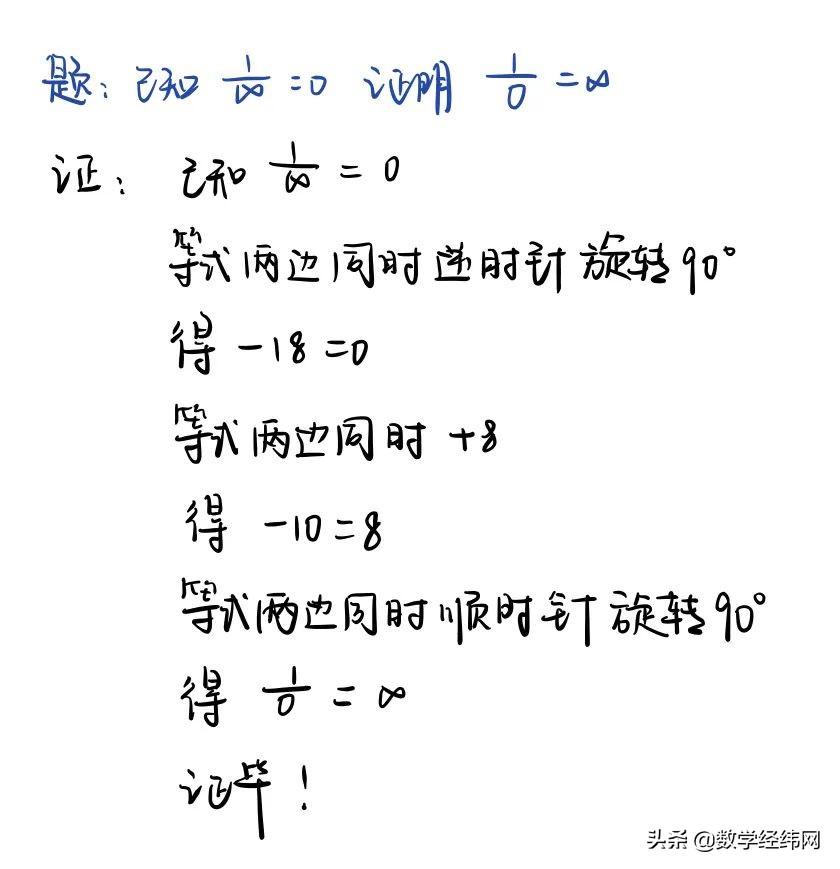 题：已知 1/∞ = 0 证明 1/0 = ∞
证： 已知 1/∞ = 0
等式两边同时逆时针旋转90°
得 -18=0
等式两边同时 +8
得 -10=8
等式两边同时顺时针旋转90°
得 1/0 = ∞
证毕！
头条 @数学经纬网